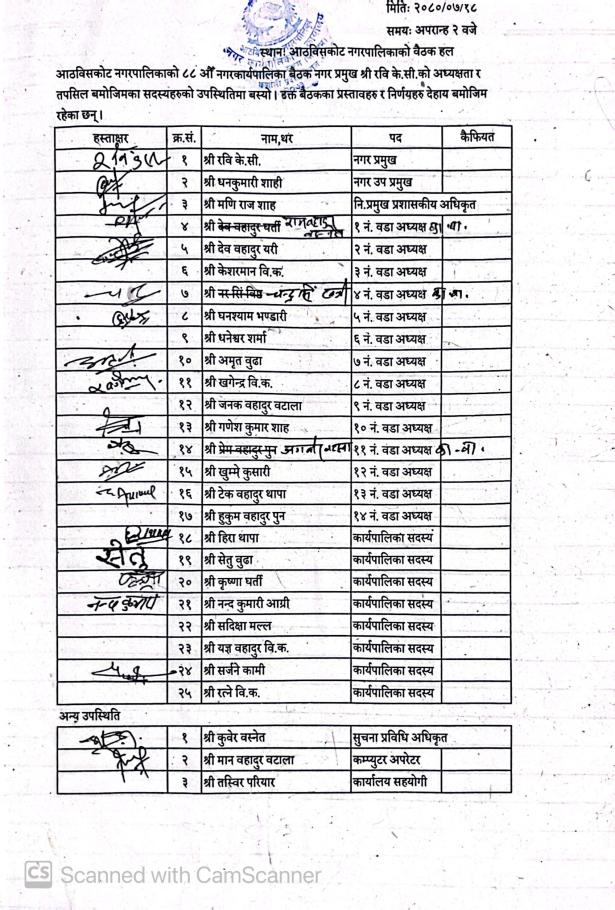 मितिः २०८०/०७/१८
समयः अपरान्ह २ वजे
स्थानः आठविसकोट नगरपालिकाको वैठक हल
आठविसकोट नगरपालिकाको ८८ औं नगरकार्यपालिका बैठक नगर प्रमुख श्री रवि के.सी.को अध्यक्षता र
तपसिल बमोजिमका सदस्यहरुको उपस्थितिमा बस्यो। उक्त बैठकका प्रस्तावहरु र निर्णयहरु देहाय बमोजिम
रहेका छन्।
हस्ताक्षर क्र.सं. नाम,थर पद कैफियत
१ श्री रवि के.सी. नगर प्रमुख
२ श्री धनकुमारी शाही नगर उप प्रमुख
३ श्री मणि राज शाह नि.प्रमुख प्रशासकीय अधिकृत
४ श्री देव वहादुर घर्ती १ नं. वडा अध्यक्ष का. वा.
५ श्री देव वहादुर यरी २ नं. वडा अध्यक्ष
६ श्री केशरमान वि.क. ३ नं. वडा अध्यक्ष
७ श्री नर सिं विष्ट ४ नं. वडा अध्यक्ष का. वा.
८ श्री घनश्याम भण्डारी ५ नं. वडा अध्यक्ष
९ श्री धनेश्वर शर्मा ६ नं. वडा अध्यक्ष
१० श्री अमृत वुढा ७ नं. वडा अध्यक्ष
११ श्री खगेन्द्र वि.क. ८ नं. वडा अध्यक्ष
१२ श्री जनक वहादुर वटाला ९ नं. वडा अध्यक्ष
१३ श्री गणेश कुमार शाह १० नं. वडा अध्यक्ष
१४ श्री प्रेम वहादुर पुन ११ नं. वडा अध्यक्ष का. वा.
१५ श्री खुम्मे कुसारी १२ नं. वडा अध्यक्ष
१६ श्री टेक वहादुर थापा १३ नं. वडा अध्यक्ष
१७ श्री हुकुम वहादुर पुन १४ नं. वडा अध्यक्ष
१८ श्री हिरा थापा कार्यपालिका सदस्य
सेतु १९ श्री सेतु वुढा कार्यपालिका सदस्य
२० श्री कृष्णा घर्ती कार्यपालिका सदस्य
२१ श्री नन्द कुमारी आग्री कार्यपालिका सदस्य
२२ श्री सदिक्षा मल्ल कार्यपालिका सदस्य
२३ श्री यज्ञ वहादुर वि.क. कार्यपालिका सदस्य
२४ श्री सर्जने कामी कार्यपालिका सदस्य
२५ श्री रत्ने वि.क. कार्यपालिका सदस्य
अन्य उपस्थिति
१ श्री कुवेर वस्नेत सुचना प्रविधि अधिकृत
२ श्री मान वहादुर वटाला कम्प्युटर अपरेटर
३ श्री तस्विर परियार कार्यालय सहयोगी
CS Scanned with CamScanner